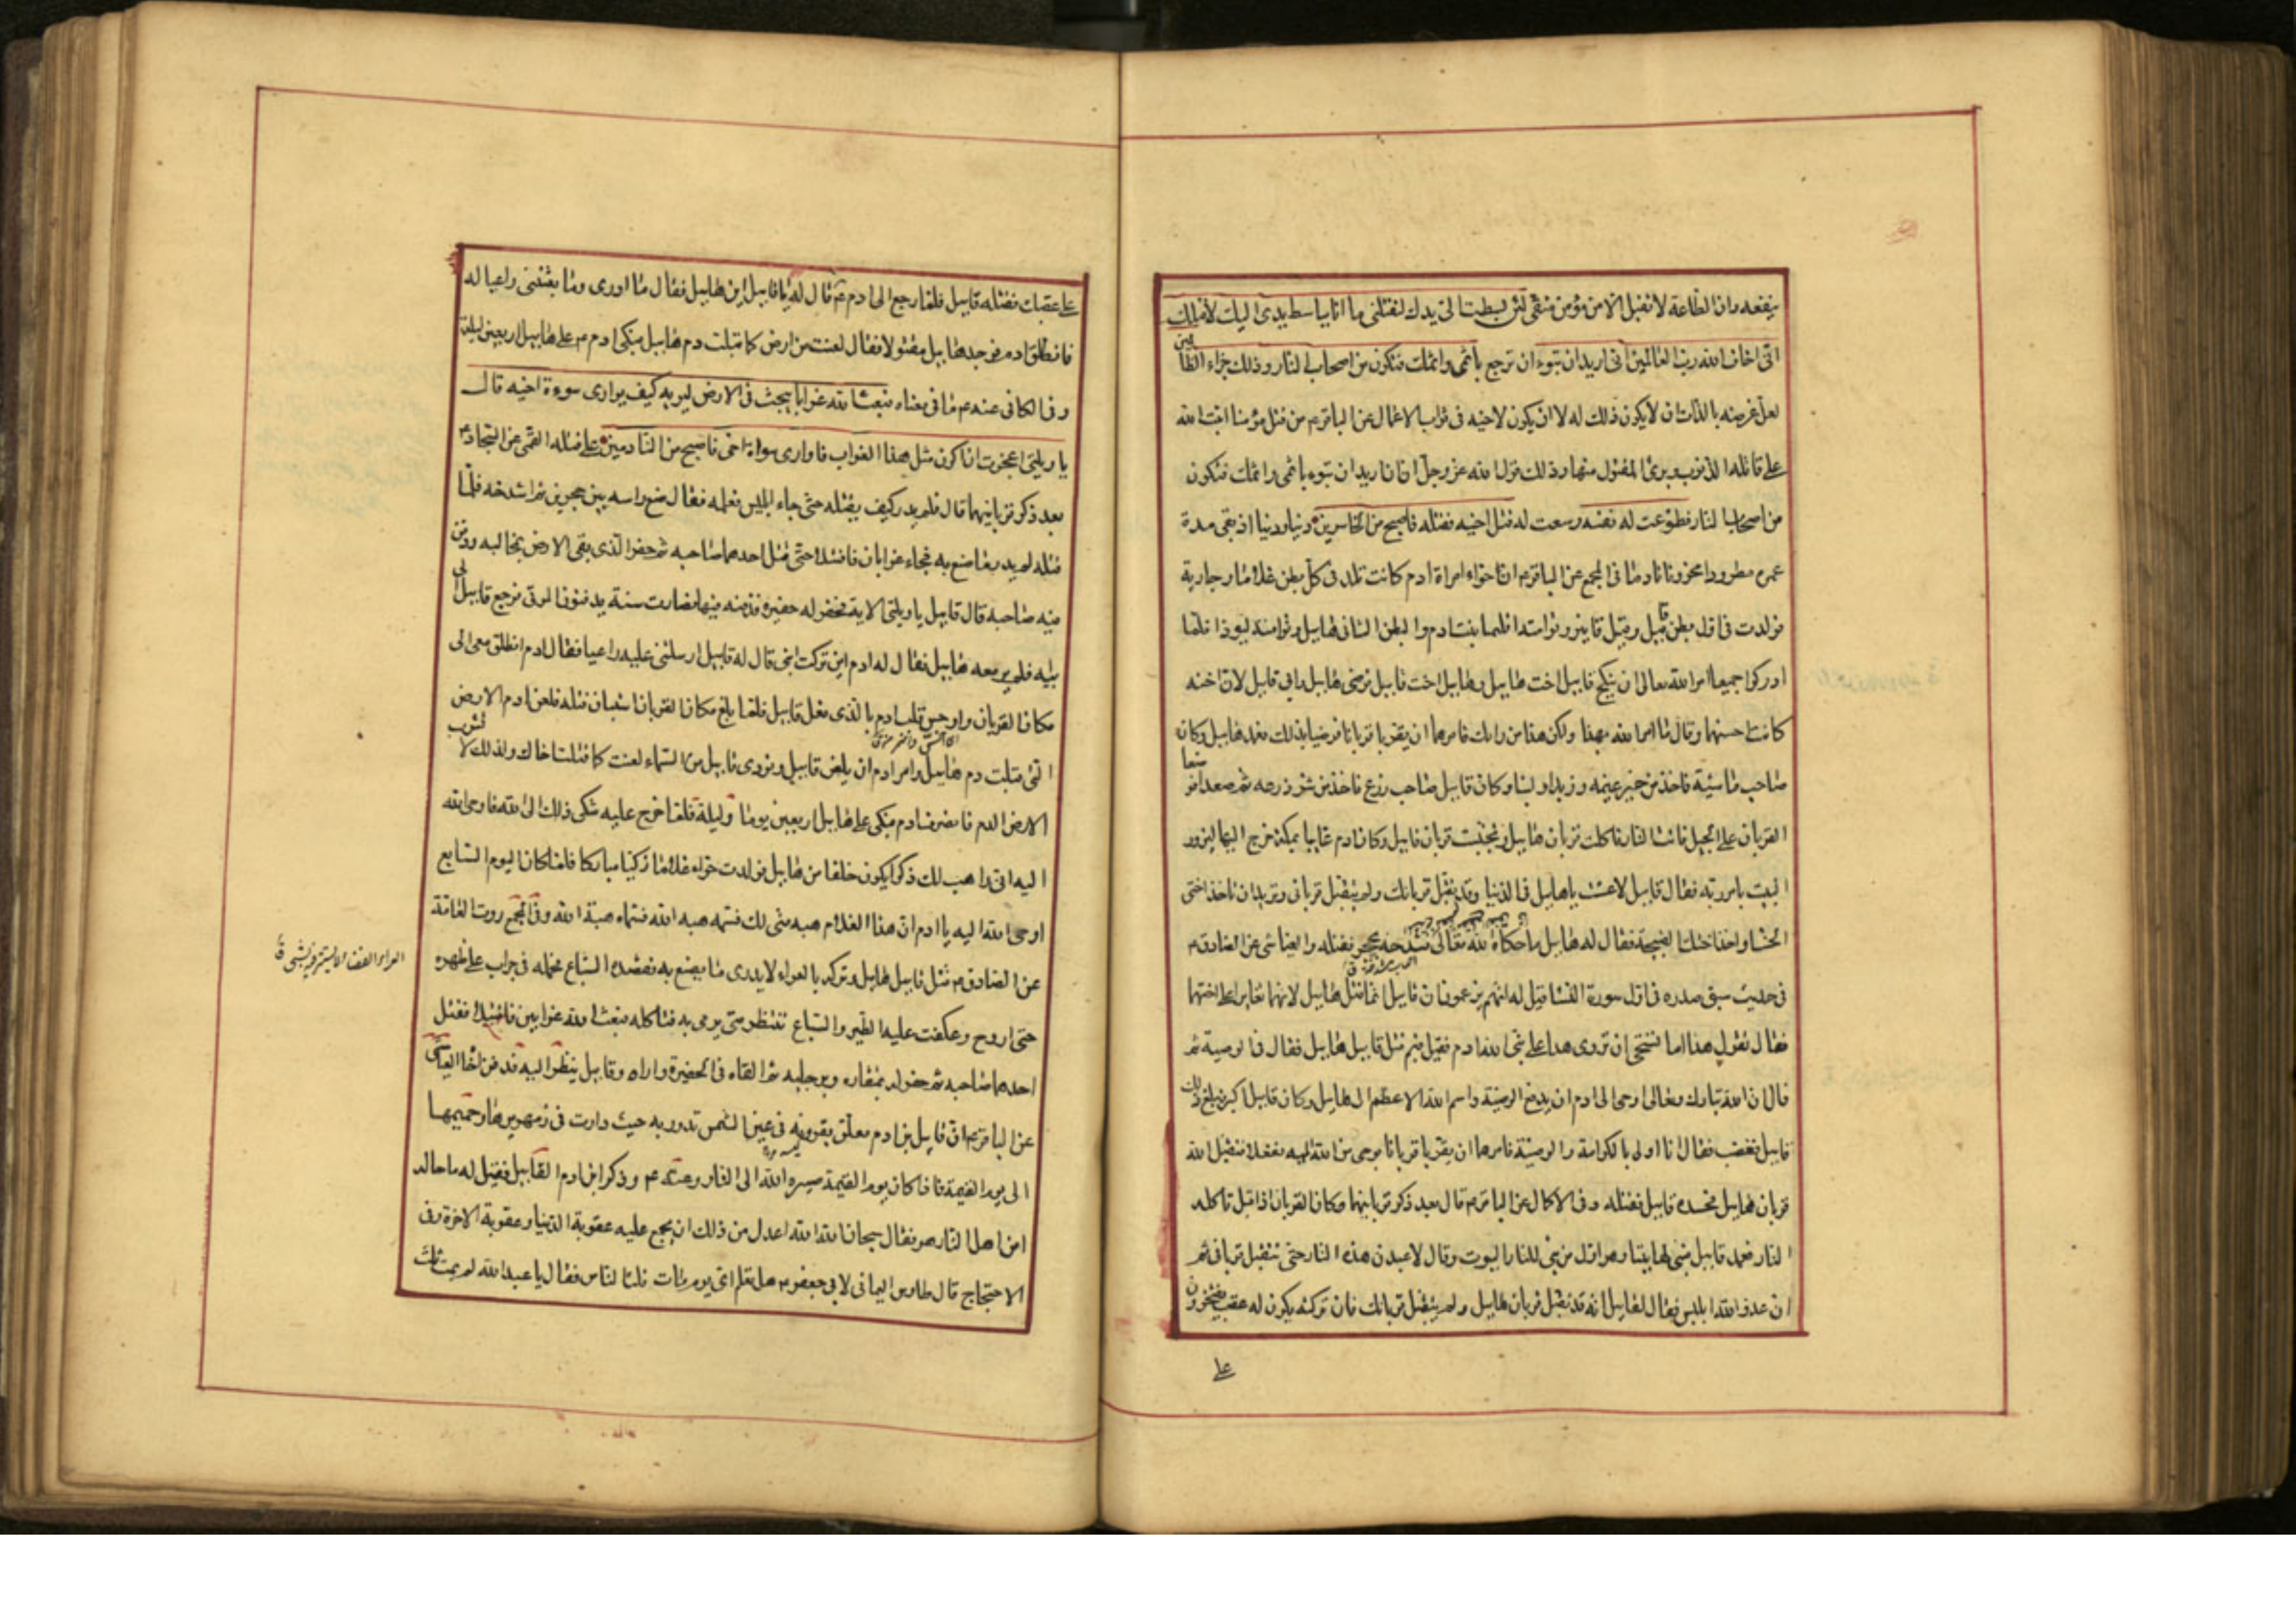 ينفعه وان الطاعة لا تقبل الا من مؤمن متقي لئن بسطت الي يدك لتقتلني ما انا بباسط يدي اليك لاقتلك
اني اخاف الله رب العالمين اني اريد ان تبوء ان ترجع باثمي واثمك فتكون من اصحاب النار وذلك جزاء الظالمين
لعل غرضه بالذات ان لا يكون ذلك له لا ان يكون لاخيه في ثواب الاعمال عن الباقر م من قتل مؤمنا اثبت الله
على قاتله الذنوب وبرئ المقتول منها وذلك قول الله عز وجل اني اريد ان تبوء باثمي واثمك فتكون
من اصحاب النار فطوعت له نفسه وسعت له قتل اخيه فقتله فاصبح من الخاسرين دينا ودنيا اذ بقي مدة
عمره مطرودا محزونا نادما في المجمع عن الباقر م ان حواء امراة ادم كانت تلد في كل بطن غلاما وجارية
فولدت في اول بطن قابيل وقيل قابين وتوامته اقليما بنت ادم والبطن الثاني هابيل وتوامته ليوذا فلما
ادركوا جميعا امر الله تعالى ان ينكح قابيل اخت هابيل وهابيل اخت قابيل فرضي هابيل وابى قابيل لان اخته
كانت احسنهما وقال ما امر الله بهذا ولكن هذا من رايك فامرهما ان يقربا قربانا فرضيا بذلك فعمد هابيل وكان
صاحب ماشية فاخذ من خير غنمه وزبدا ولبنا وكان قابيل صاحب زرع فاخذ من شر زرعه ثم صعدا فوضعا
القربان على الجبل فاتت النار فاكلت قربان هابيل وتجنبت قربان قابيل وكان ادم غايبا بمكة خرج اليها ليزور
البيت بامر ربه فقال قابيل لا عشت يا هابيل في الدنيا وقد تقبل قربانك ولم يتقبل قرباني وتريد ان تاخذ اختي
الحسناء واخذ اختك القبيحة فقال له هابيل ما حكاه الله تعالى فشدخه بحجر فقتله والعياشي عن الصادق م
في حديث سبق صدره في اول سورة النساء قيل له انهم يزعمون ان قابيل انما قتل هابيل لانهما تغايرا على اختهما
فقال تقول هذا اما تستحيي ان تروي هذا على نبي الله ادم فقيل فبم قتل قابيل هابيل فقال في الوصية ثم
قال ان الله تبارك وتعالى اوحى الى ادم ان يدفع الوصية واسم الله الاعظم الى هابيل وكان قابيل اكبر فبلغ ذلك
قابيل فغضب فقال انا اولى بالكرامة والوصية فامرهما ان يقربا قربانا بوحي من الله اليه ففعلا فتقبل الله
قربان هابيل فحسده قابيل فقتله وفي الاكمال عن الباقر م قال بعد ذكر قربانيهما وكان القربان اذا قبل تاكله
النار فعمد قابيل فبنى لها بيتا وهو اول من بنى للنار البيوت وقال لاعبدن هذه النار حتى تتقبل قرباني ثم
ان عدو الله ابليس قال لقابيل انه قد تقبل قربان هابيل ولم يتقبل قربانك فان تركته يكون له عقب يفتخرون
على
على عقبك فقتله قابيل فلما رجع الى ادم م قال له يا قابيل اين هابيل فقال ما ادري وما بعثتني راعيا له
فانطلق ادم فوجد هابيل مقتولا فقال لعنت من ارض كما قبلت دم هابيل فبكى ادم م على هابيل اربعين ليلة
وفي الكافي عنه م ما في معناه فبعث الله غرابا يبحث في الارض ليريه كيف يواري سوءة اخيه قال
يا ويلتى اعجزت ان اكون مثل هذا الغراب فاواري سواة اخي فاصبح من النادمين على قتله القمي عن السجاد م
بعد ذكر قربانيهما قال فلم يدر كيف يقتله حتى جاء ابليس فعلمه فقال ضع راسه بين حجرين ثم اشدخه فلما
قتله لم يدر ما صنع به فجاء غرابان فاقتتلا حتى قتل احدهما صاحبه ثم حفر الذي بقي الارض بمخالبه ودفن
فيه صاحبه قال قابيل يا ويلتى الاية فحفر له حفيرة فدفنه فيها فصارت سنة يدفنون الموتى فرجع قابيل الى
ابيه فلم ير معه هابيل فقال له ادم اين تركت ابني قال له قابيل ارسلتني عليه راعيا فقال ادم انطلق معي الى
مكان القربان واوجس قلب ادم بالذي فعل قابيل فلما بلغ مكان القربان استبان قتله فلعن ادم الارض
التي قبلت دم هابيل وامر ادم ان يلعن قابيل ونودي قابيل من السماء لعنت كما قتلت اخاك ولذلك لا تشرب
الارض الدم فانصرف ادم فبكى على هابيل اربعين يوما وليلة فلما خرج عليه شكى ذلك الى الله فاوحى الله
اليه اني واهب لك ذكرا يكون خلفا من هابيل فولدت حواء غلاما زكيا مباركا فلما كان اليوم السابع
اوحى الله اليه يا ادم ان هذا الغلام هبة مني لك فسمه هبة الله فسماه هبة الله وفي المجمع روت العامة
عن الصادق م قتل قابيل هابيل وتركه بالعراء لا يدري ما يصنع به فقصده السباع فحمله في جراب على ظهره
العراء الفضاء لا يستتر فيه بشيء ق
حتى اروح وعكفت عليه الطير والسباع تنتظر متى يرمى به فتاكله فبعث الله غرابين فاقتتلا فقتل
احدهما صاحبه ثم حفر له بمنقاره وبرجليه ثم القاه في الحفيرة وواراه وقابيل ينظر اليه فدفن اخاه العياشي
عن الباقر م ان قابيل بن ادم معلق بقرونه في عين الشمس تدور به حيث دارت في زمهريرها وحميمها
الى يوم القيمة فاذا كان يوم القيمة صيره الله الى النار وعنه م وذكر ابن ادم القابيل فقيل له ما حاله
امن اهل النار هو فقال سبحان الله الله اعدل من ذلك ان يجمع عليه عقوبة الدنيا وعقوبة الاخرة وفي
الاحتجاج قال طاوس اليماني لابي جعفر م هل تعلم اي يوم مات ثلث الناس فقال يا عبد الله لم يمت ثلث